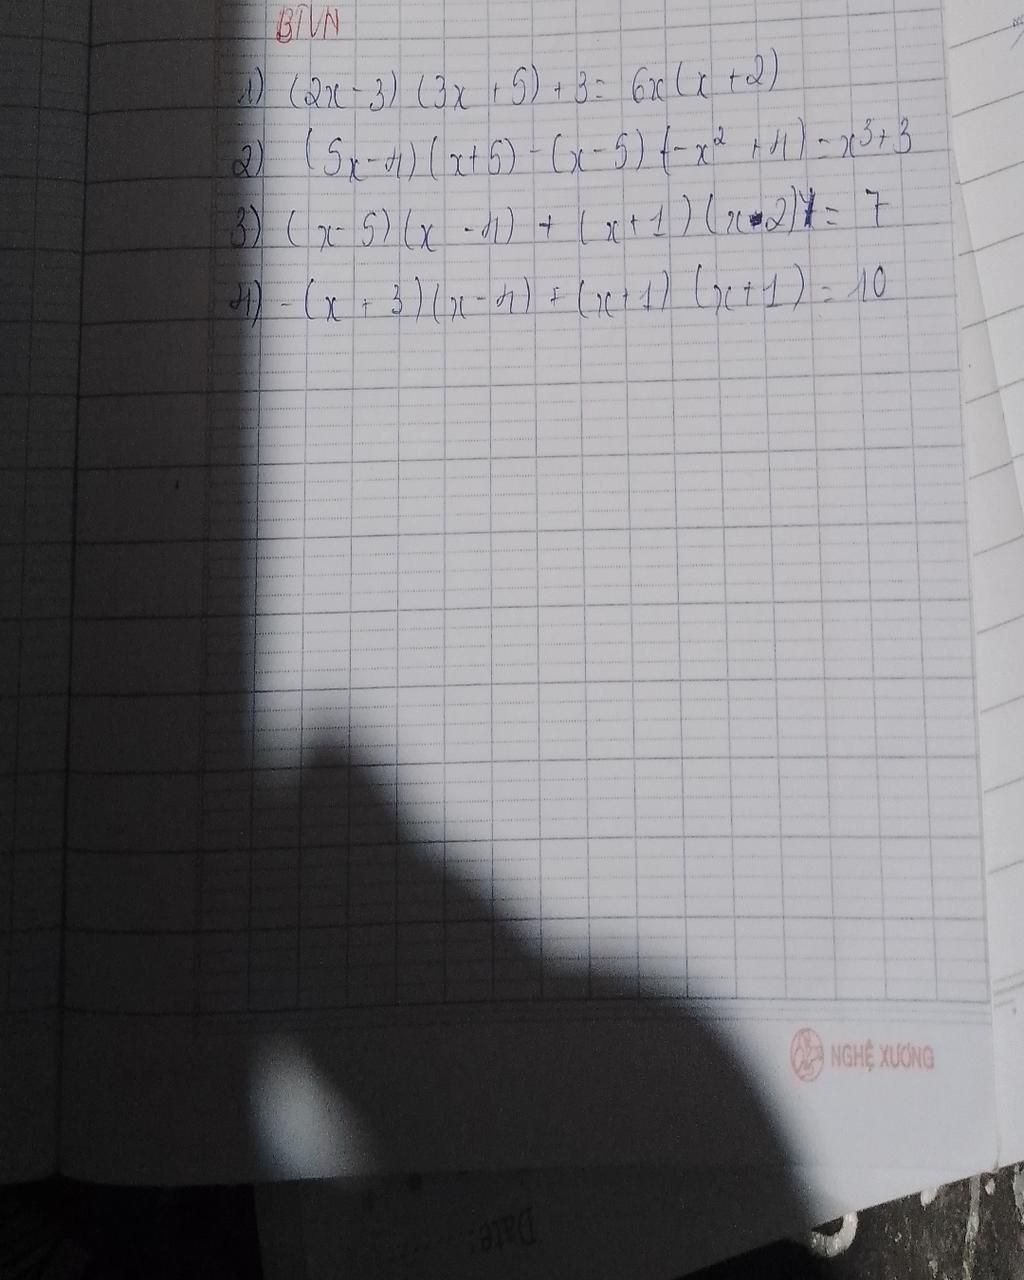 BTVN
1) (2x - 3) (3x + 5) + 3 = 6x (x + 2)
2) (5x - 4) (x + 5) - (x - 5) (-x² + 4) = x³ + 3
3) (x - 5) (x - 4) + (x + 1) (x - 2) = 7
4) - (x + 3) (x - 4) + (x + 1) (x + 1) = 10
NGHỆ XƯƠNG
Date: